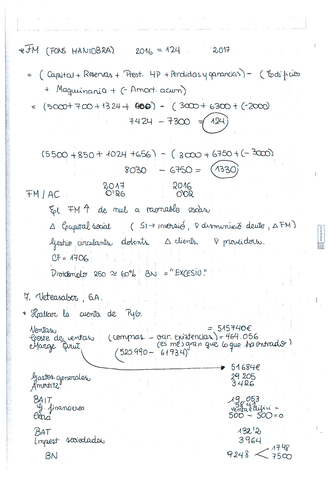 * FM (FONS MANIOBRA) 2016 = 124 2017
= (Capital + Reservas + Prest. LP + Perdidas y ganancias) - (Edificios
+ Maquinaria + (- Amort. acum)
= (5000 + 700 + 1324 + 400) - (3000 + 6300 + (-2000)
7424 - 7300 = 124
(5500 + 850 + 1024 + 656) - (3000 + 6750 + (-3000)
8030 - 6750 = 1330
2017 2016
FM / AC 0'26 0'02
El FM ↑ de nul a raonable
Δ Capital social (Si → inversió, ∇ disminució deute, Δ FM)
Gestio circulants dolents Δ clients ∇ proveidors.
CF = 1706
Dividendo 250 ≈ 60% BN = "EXCESIU"
7. S.A.
* Realizar la cuenta de PyG.
Ventas = 515740€
Coste de ventas (compras - var. existencias) = 464.056
Marge Brut (es mes gran que lo que ha entrado)
(525990 - 61934)
51684€
Gastos generales 29205
Amortiz 3426
BAIT 19.053
G. financieros 5841
500 - 500 = 0
BAT 13212
Impost sociedades 3964
BN 9248 1748
7500